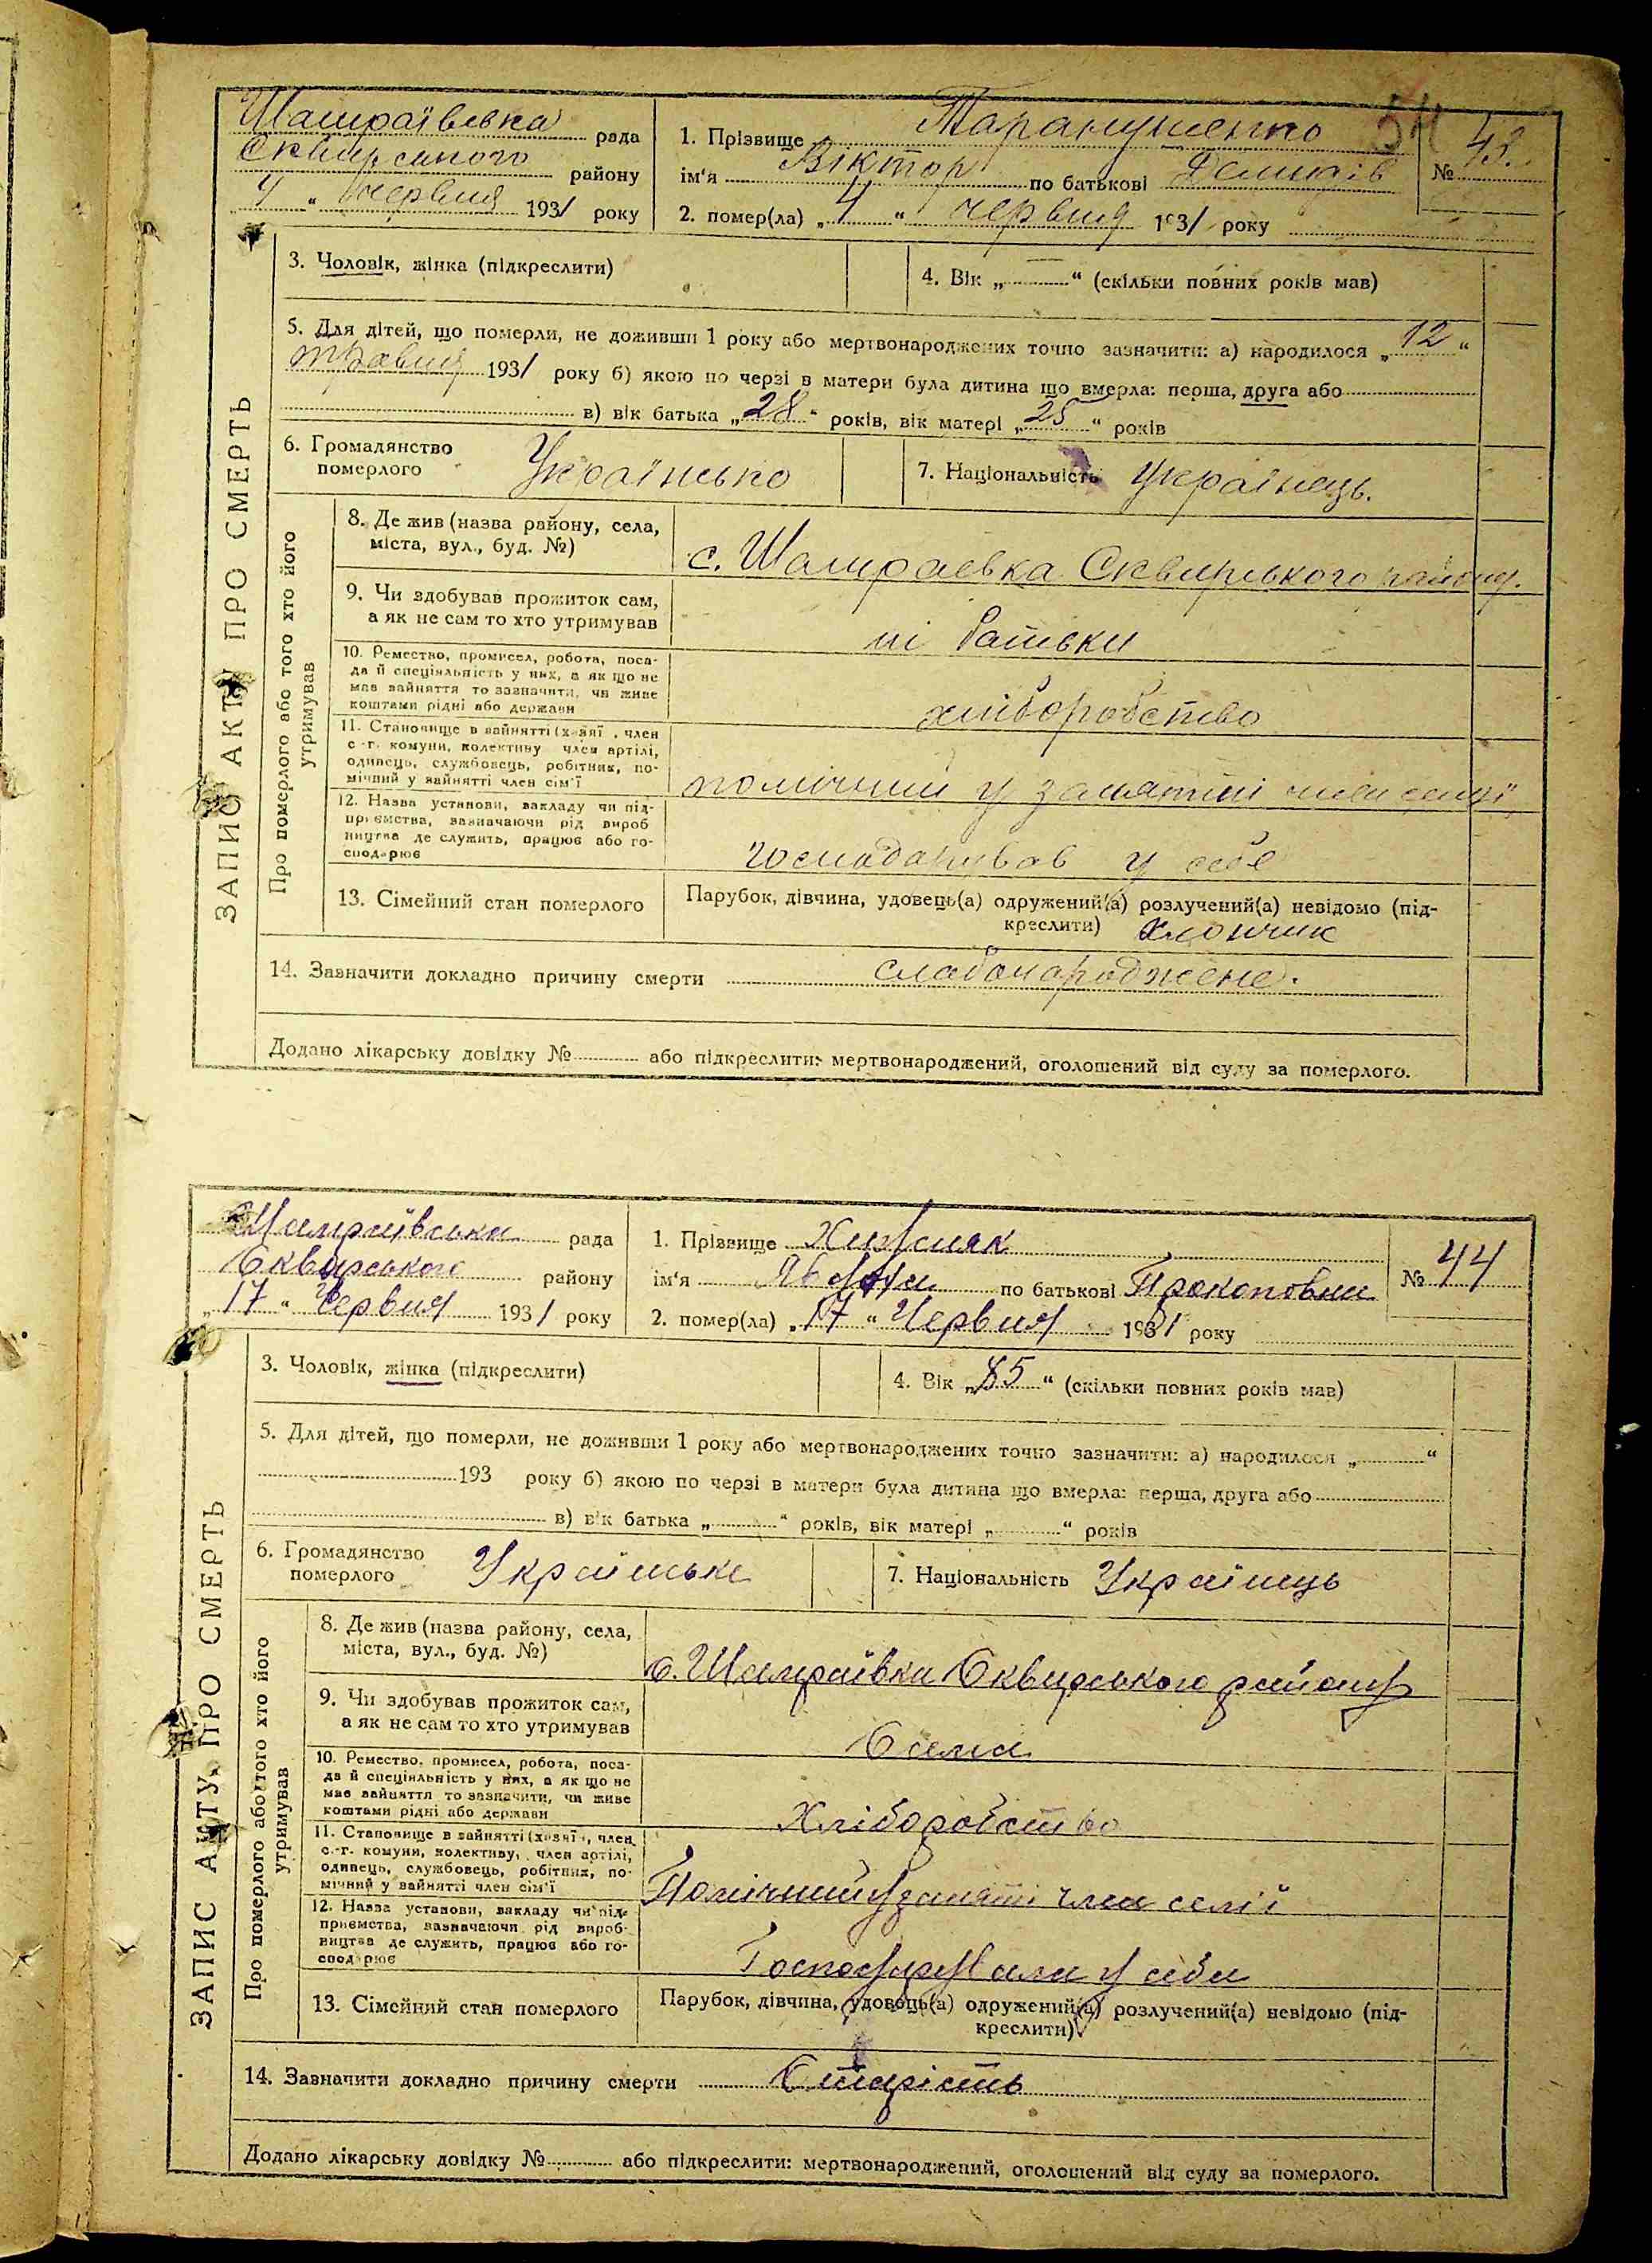 54
Шамраївська рада
Сквирського району
„4“ червня 1931 року
1. Прізвище Таранушенко
ім'я Віктор по батькові Демидів
№ 43.
2. помер(ла) „4“ червня 1931 року
ЗАПИС АКТУ ПРО СМЕРТЬ
3. Чоловік, жінка (підкреслити)
4. Вік „ — “ (скільки повних років мав)
5. Для дітей, що померли, не доживши 1 року або мертвонароджених точно зазначити: а) народилося „12“
травня 1931 року б) якою по черзі в матери була дитина що вмерла: перша, друга або
в) вік батька „28“ років, вік матері „25“ років
6. Громадянство
померлого Українсько
7. Національність Українець.
Про померлого або того хто його
утримував
8. Де жив (назва району, села,
міста, вул., буд. №)
с. Шамраевка Сквирського району.
9. Чи здобував прожиток сам,
а як не сам то хто утримував
ні батьки
10. Ремество, промисел, робота, поса-
да й спеціяльність у них, а як що не
мав зайняття то зазначити, чи живе
коштами рідні або держави
хліборобство
11. Становище в зайнятті (хазяї, член
с-г. комуни, колективу член артілі,
одинець, службовець, робітник, по-
мічний у зайнятті член сім'ї
помічний у занятті член семї
12. Назва установи, закладу чи під-
приємства, зазначаючи рід вироб
ництва де служить, працює або го-
сподарює
господарував у себе
13. Сімейний стан померлого
Парубок, дівчина, удовець(а) одружений(а) розлучений(а) невідомо (під-
креслити) Хлопчик
14. Зазначити докладно причину смерти слабонароджене.
Додано лікарську довідку № або підкреслити: мертвонароджений, оголошений від суду за померлого.
Шамраївська рада
Сквирського району
„17“ Червня 1931 року
1. Прізвище Хижняк
ім'я по батькові Прокоповна
№ 44
2. помер(ла) „17“ Червня 1931 року
ЗАПИС АКТУ ПРО СМЕРТЬ
3. Чоловік, жінка (підкреслити)
4. Вік „85“ (скільки повних років мав)
5. Для дітей, що померли, не доживши 1 року або мертвонароджених точно зазначити: а) народилося „ “
193 року б) якою по черзі в матери була дитина що вмерла: перша, друга або
в) вік батька „ “ років, вік матері „ “ років
6. Громадянство
померлого Українське
7. Національність Українець
Про померлого або того хто його
утримував
8. Де жив (назва району, села,
міста, вул., буд. №)
с. Шамраївка Сквирського району
9. Чи здобував прожиток сам,
а як не сам то хто утримував
Сама
10. Ремество, промисел, робота, поса-
да й спеціяльність у них, а як що не
мав зайняття то зазначити, чи живе
коштами рідні або держави
Хліборобство
11. Становище в зайнятті (хазяї, член
с.-г. комуни, колективу, член артілі,
одинець, службовець, робітник, по-
мічний у зайнятті член сім'ї
Помічний у заняті член семії
12. Назва установи, закладу чи під-
приємства, зазначаючи рід вироб-
ництва де служить, працює або го-
сподарює
Господарувала у себе
13. Сімейний стан померлого
Парубок, дівчина, удовець(а) одружений(а) розлучений(а) невідомо (під-
креслити)
14. Зазначити докладно причину смерти Старість
Додано лікарську довідку № або підкреслити: мертвонароджений, оголошений від суду за померлого.